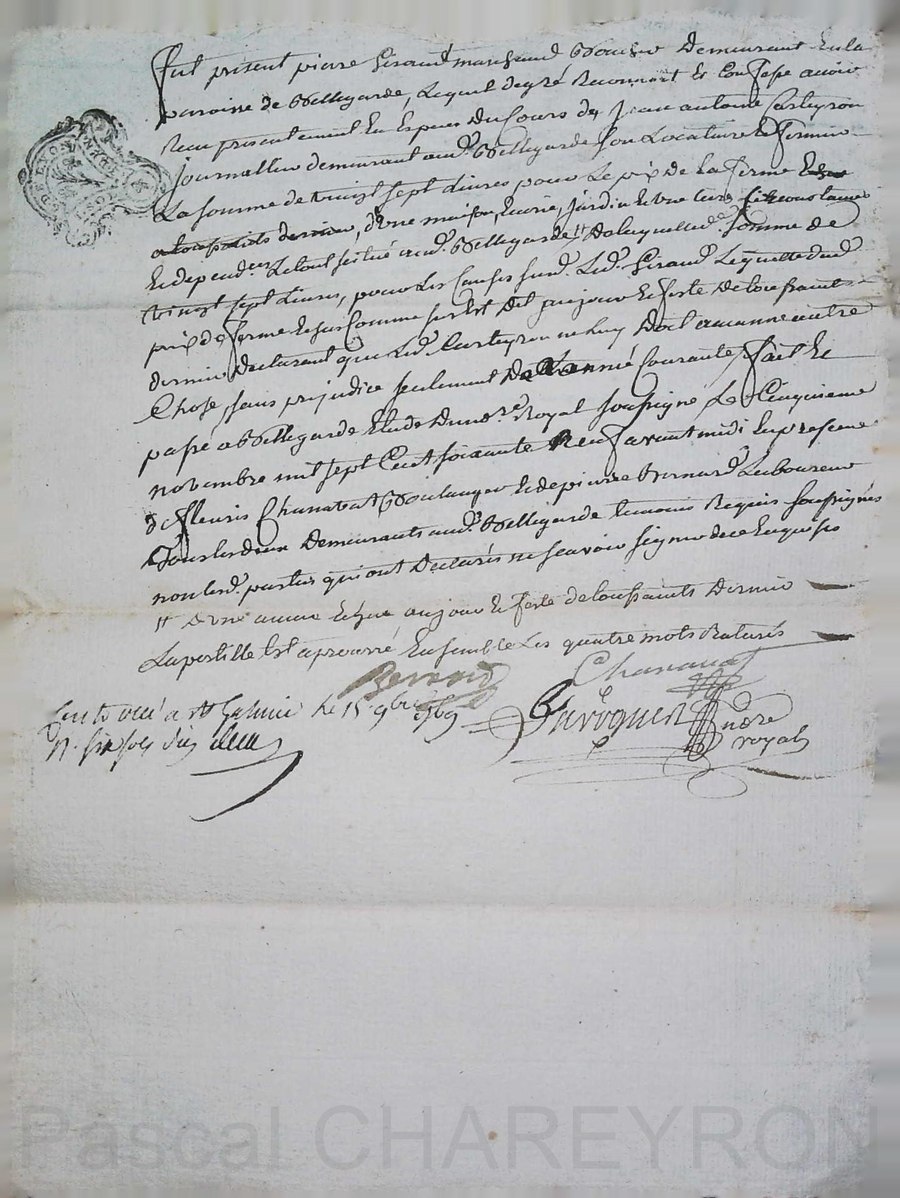 fut présent pierre Giraud marchand Boucher Demeurant En la
paroisse de Bellegarde, Lequel de gré Reconnoit Et Confesse avoir
Recu presentement En Espece Du Cours de Jean antoine Carteyron
journallier demeurant aud. Bellegarde son Locataire Et fermier
La somme de vingt sept Livres pour Le prix de La ferme
d'une maison, Ecurie, jardin Circonstances
Et dependces Le tout scitué aud. Bellegarde, tt De laquelle de somme de
vingt sept Livres, pour Les Causes susd. Led. Giraud Le quitte dud.
prix de ferme Echus Comme sus Est Dit au jour Et feste De toussaints
dernier Declarant que Led. Carteyron ne Luy Doit aucune autre
Chose, sans prejudice seulement De L'année Courante, fait Et
passé a Bellegarde Etude Du nore. Royal soussigné Le Cinquieme
novembre mil sept Cent soixante neuf avant midi En presence
de fleuris Chanavat Boulanger Et de pierre Bernard Laboureur
Tous Les deux Demeurants aud. Bellegarde temoins Requis soussignés
non Les d. parties qui ont Declarés ne scavoir signer de ce Enquis
tt D'une année Echue au jour Et feste de toussaints Dernier
La postille Est aprouvé Ensemble Les quatre mots Raturés
Bernard Chanavat
Controllé a St Galmier Le 15 9bre 1769
R. six sols dix den
nore
royal
Pascal CHAREYRON